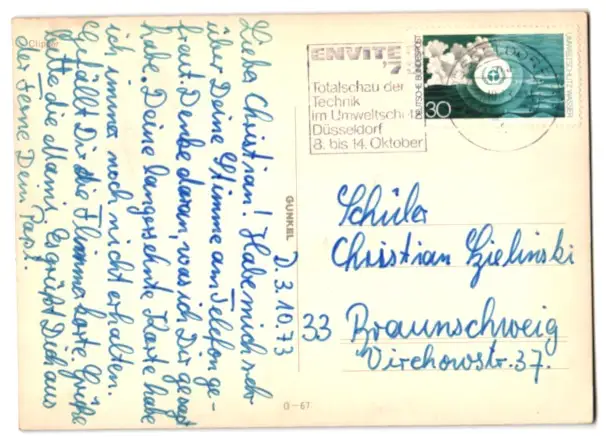 Clipper
D. 3.10.73
Lieber Christian! Habe mich sehr
über Deine Stimme am Telefon ge-
freut. Denke daran, was ich Dir gesagt
habe. Deine langersehnte Karte habe
ich immer noch nicht erhalten.
Gefällt Dir die Flimmerkarte. Grüße
bitte die Mami. Es grüßt Dich aus
der Ferne Dein Papi.
GUNKEL
G-67
ENVITEC
'73
Totalschau der
Technik
im Umweltschutz
Düsseldorf
8. bis 14. Oktober
DEUTSCHE BUNDESPOST
30
UMWELTSCHUTZ: WASSER
Schüler
Christian Zielinski
33 Braunschweig
Virchowstr. 37.